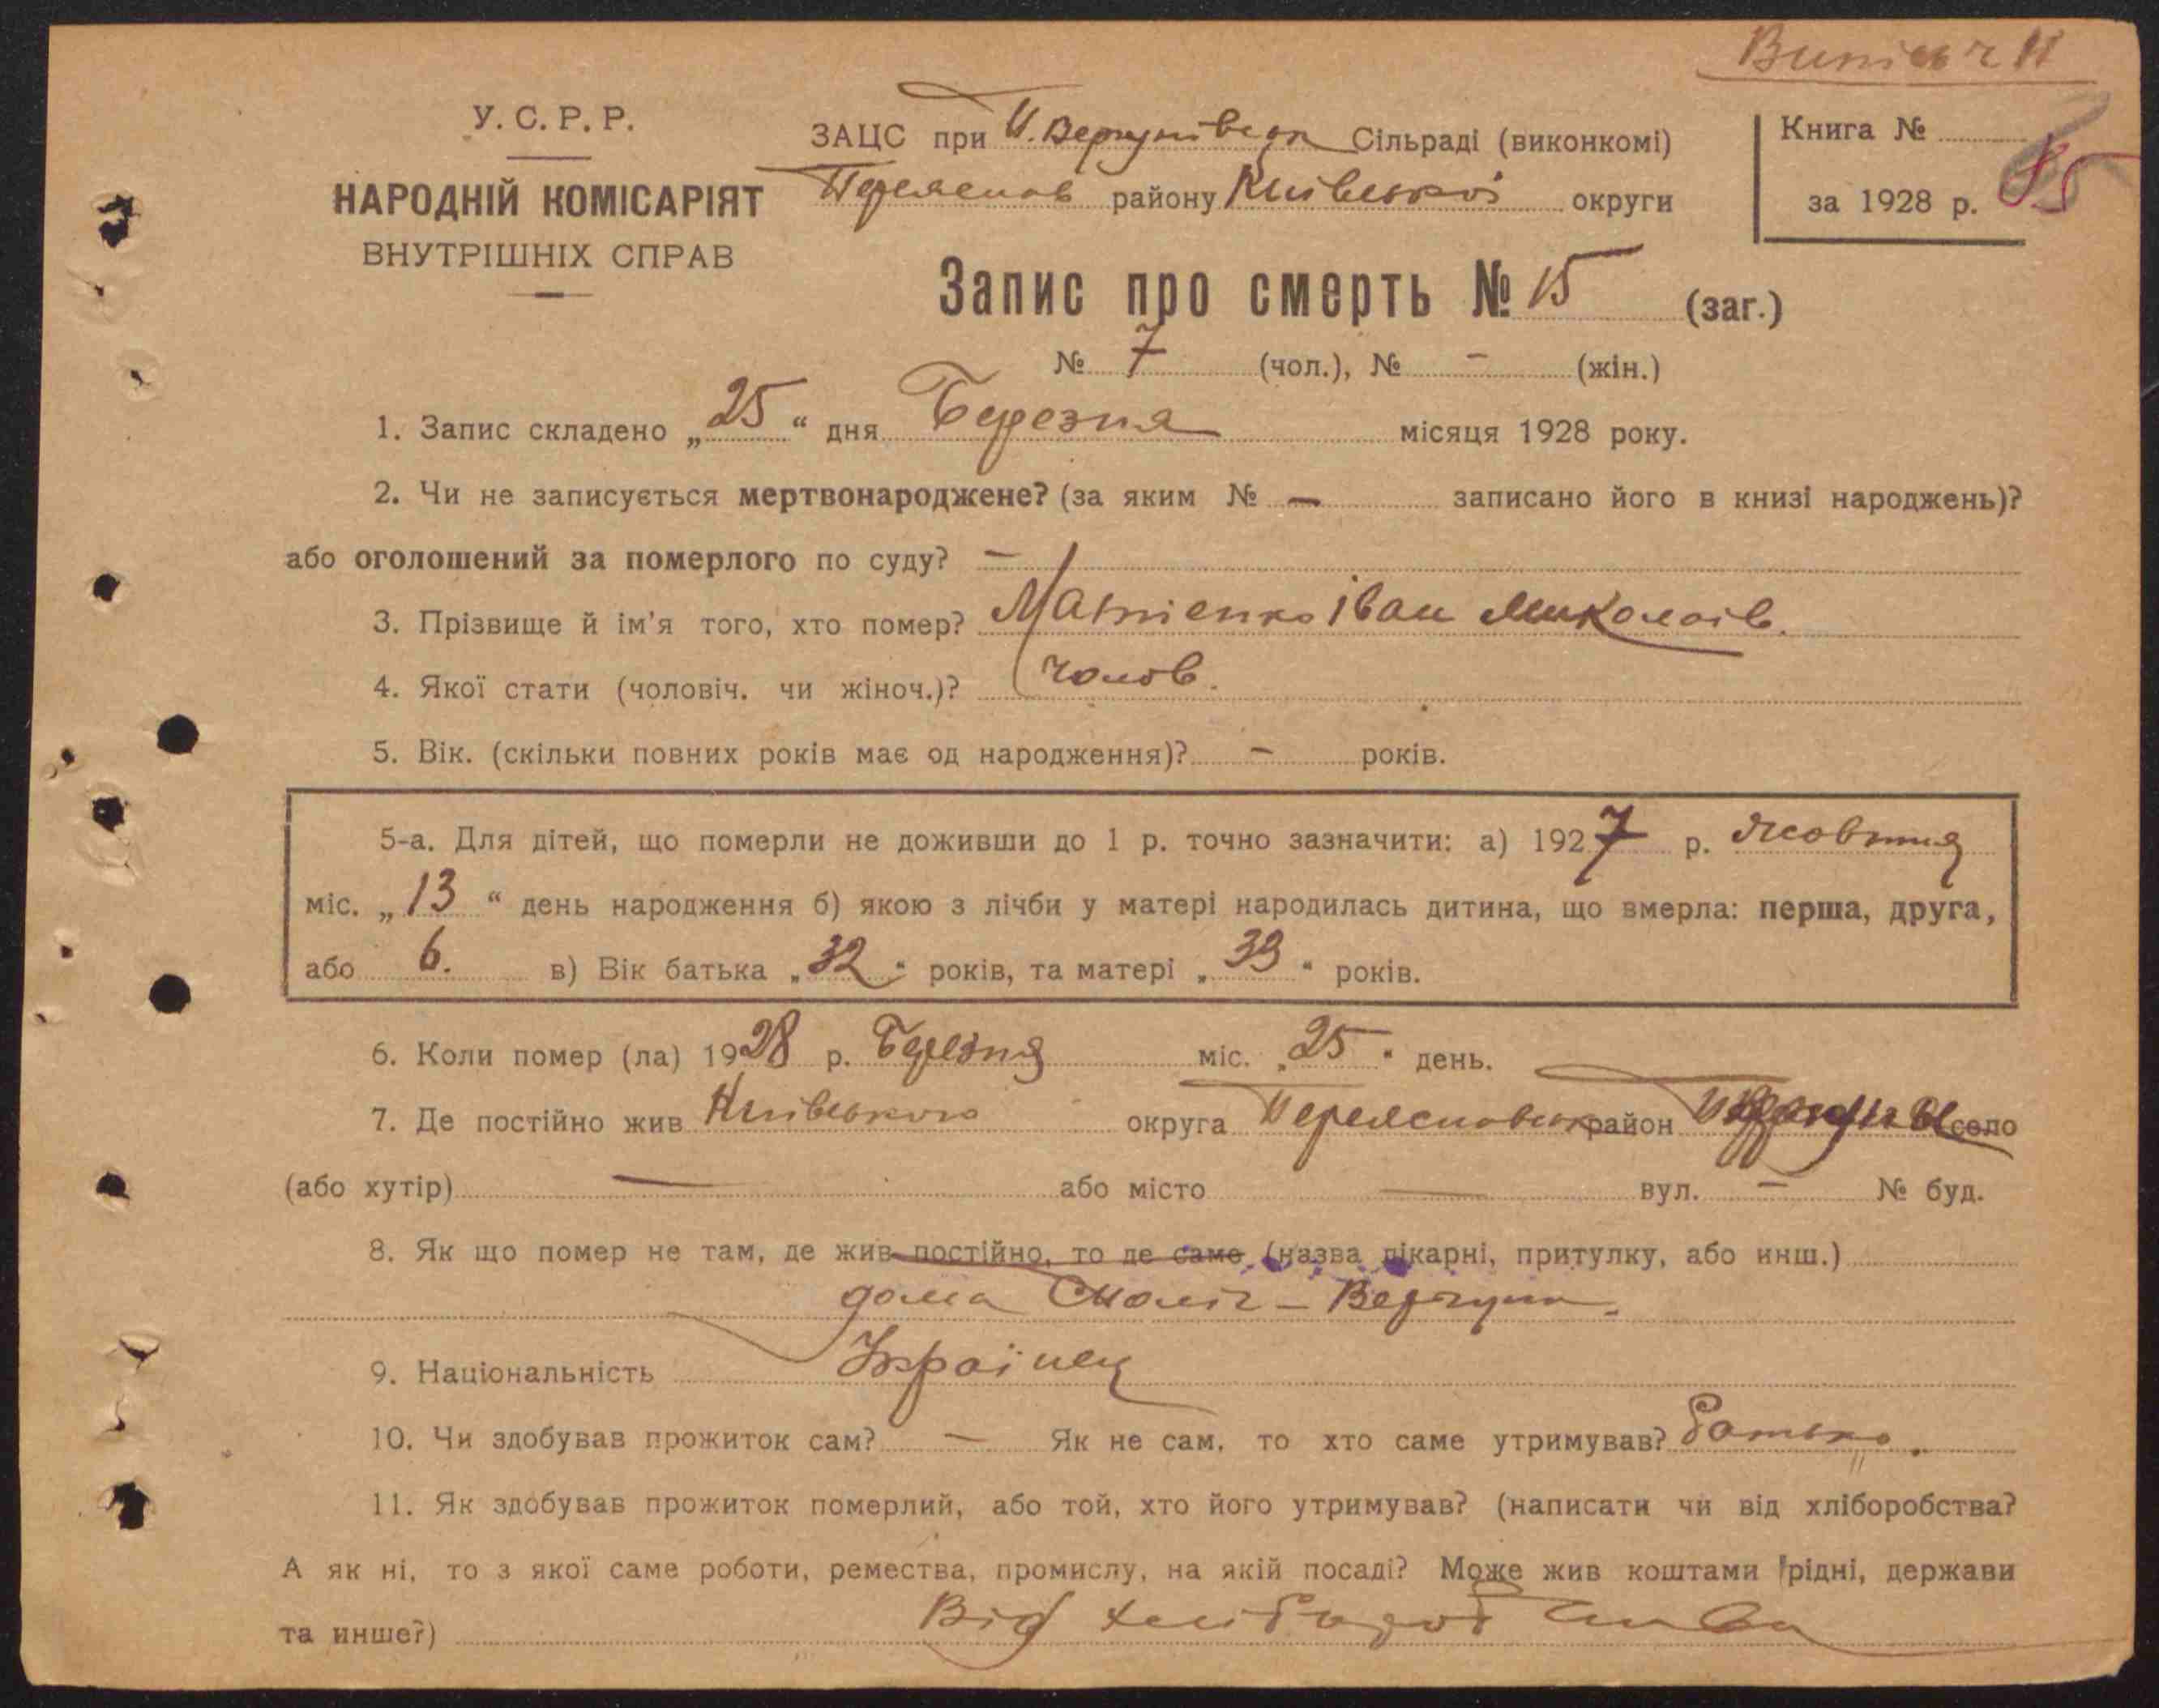 У. С. Р. Р.
НАРОДНІЙ КОМІСАРІЯТ
ВНУТРІШНІХ СПРАВ
ЗАЦС при Сільраді (виконкомі)
Переяслав району Київської округи
Книга №
за 1928 р.
Запис про смерть № 15 (заг.)
№ 7 (чол.), № – (жін.)
1. Запис складено „25“ дня Березня місяця 1928 року.
2. Чи не записується мертвонароджене? (за яким № – записано його в книзі народжень)?
або оголошений за померлого по суду? –
3. Прізвище й ім'я того, хто помер? Матіенко Іван Миколаїв.
4. Якої стати (чоловіч. чи жіноч.)? чолов.
5. Вік. (скільки повних років має од народження)? – років.
5-а. Для дітей, що померли не доживши до 1 р. точно зазначити: а) 1927 р. Жовтня
міс. „13“ день народження б) якою з лічби у матері народилась дитина, що вмерла: перша, друга,
або 6. в) Вік батька „32“ років, та матері „39“ років.
6. Коли помер (ла) 1928 р. Березня міс. „25“ день.
7. Де постійно жив Київського округа район село
(або хутір) — або місто — вул. – № буд.
8. Як що помер не там, де жив постійно, то де саме (назва лікарні, притулку, або инш.)
дома
9. Національність Українец
10. Чи здобував прожиток сам? – Як не сам, то хто саме утримував? батько.
11. Як здобував прожиток померлий, або той, хто його утримував? (написати чи від хліборобства?
А як ні, то з якої саме роботи, ремества, промислу, на якій посаді? Може жив коштами рідні, держави
та инше?) Від хліборобства